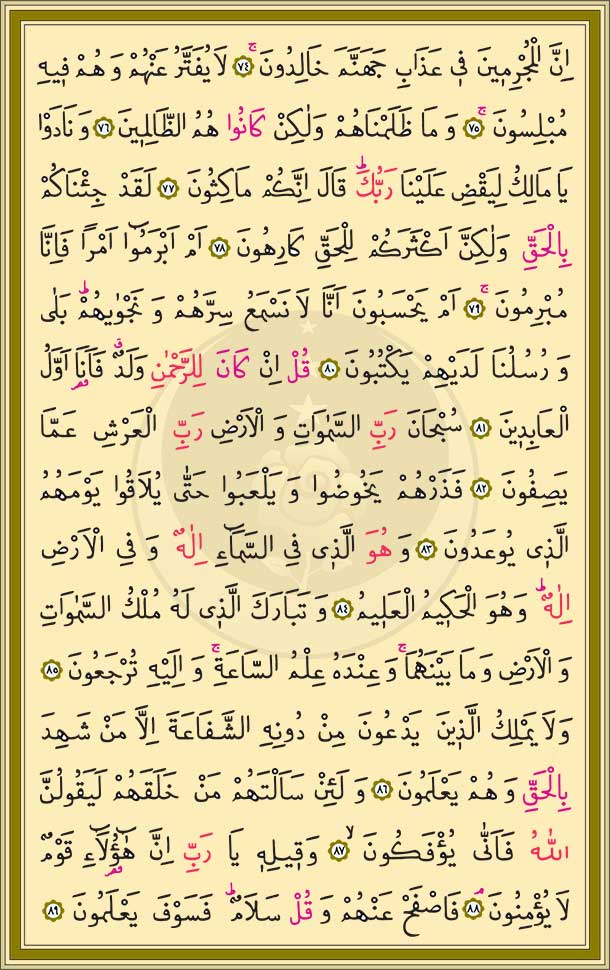 اِنَّ الْمُجْرِمٖينَ فٖي عَذَابِ جَهَنَّمَ خَالِدُونَۚ ﴿٧٤﴾ لَا يُفَتَّرُ عَنْهُمْ وَهُمْ فٖيهِ
مُبْلِسُونَۚ ﴿٧٥﴾ وَمَا ظَلَمْنَاهُمْ وَلٰكِنْ كَانُوا هُمُ الظَّالِمٖينَ ﴿٧٦﴾ وَنَادَوْا
يَا مَالِكُ لِيَقْضِ عَلَيْنَا رَبُّكَؕ قَالَ اِنَّكُمْ مَاكِثُونَ ﴿٧٧﴾ لَقَدْ جِئْنَاكُمْ
بِالْحَقِّ وَلٰكِنَّ اَكْثَرَكُمْ لِلْحَقِّ كَارِهُونَ ﴿٧٨﴾ اَمْ اَبْرَمُٓوا اَمْرًا فَاِنَّا
مُبْرِمُونَۚ ﴿٧٩﴾ اَمْ يَحْسَبُونَ اَنَّا لَا نَسْمَعُ سِرَّهُمْ وَنَجْوٰيهُمْؕ بَلٰى
وَرُسُلُنَا لَدَيْهِمْ يَكْتُبُونَ ﴿٨٠﴾ قُلْ اِنْ كَانَ لِلرَّحْمٰنِ وَلَدٌۗ فَاَنَا۬ اَوَّلُ
الْعَابِدٖينَ ﴿٨١﴾ سُبْحَانَ رَبِّ السَّمٰوَاتِ وَالْاَرْضِ رَبِّ الْعَرْشِ عَمَّا
يَصِفُونَ ﴿٨٢﴾ فَذَرْهُمْ يَخُوضُوا وَيَلْعَبُوا حَتّٰى يُلَاقُوا يَوْمَهُمُ
الَّذٖي يُوعَدُونَ ﴿٨٣﴾ وَهُوَ الَّذٖي فِي السَّمَٓاءِ اِلٰهٌ وَفِي الْاَرْضِ
اِلٰهٌؕ وَهُوَ الْحَكٖيمُ الْعَلٖيمُ ﴿٨٤﴾ وَتَبَارَكَ الَّذٖي لَهُ مُلْكُ السَّمٰوَاتِ
وَالْاَرْضِ وَمَا بَيْنَهُمَاۚ وَعِنْدَهُ عِلْمُ السَّاعَةِۚ وَاِلَيْهِ تُرْجَعُونَ ﴿٨٥﴾
وَلَا يَمْلِكُ الَّذٖينَ يَدْعُونَ مِنْ دُونِهِ الشَّفَاعَةَ اِلَّا مَنْ شَهِدَ
بِالْحَقِّ وَهُمْ يَعْلَمُونَ ﴿٨٦﴾ وَلَئِنْ سَاَلْتَهُمْ مَنْ خَلَقَهُمْ لَيَقُولُنَّ
اللّٰهُ فَاَنّٰى يُؤْفَكُونَۙ ﴿٨٧﴾ وَقٖيلِهٖ يَا رَبِّ اِنَّ هٰٓؤُ۬لَٓاءِ قَوْمٌ
لَا يُؤْمِنُونَۢ ﴿٨٨﴾ فَاصْفَحْ عَنْهُمْ وَقُلْ سَلَامٌؕ فَسَوْفَ يَعْلَمُونَ ﴿٨٩﴾